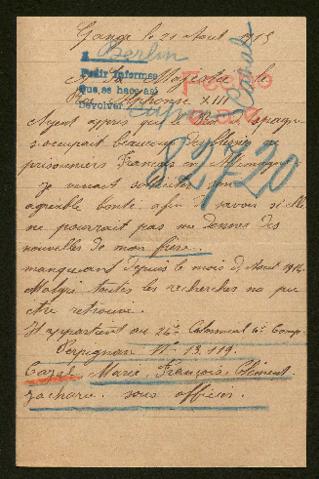 Gange le 21 Aout 1915
A
Berlin
Pedir informes
Que se hace así
Devolver
A Sa Majesté le
Roi Alphonse XIII
Fecho
82720
Ayant appris que le Roi
s'occupait beaucoup des
prisonniers Français en Allemagne
Je viens solliciter son
agreable bonté afin de savoir si elle
ne pourrait pas me donner des
nouvelles de mon frère.
manquant depuis le mois d'Aout 1914.
Malgré toutes les recherches na pu
etre retrouvé.
Il appartient au 24e Colonial 6e Comp
Perpignan N° 13.119.
Cazal Marie, François, Clément.
Zacharie. sous officier.